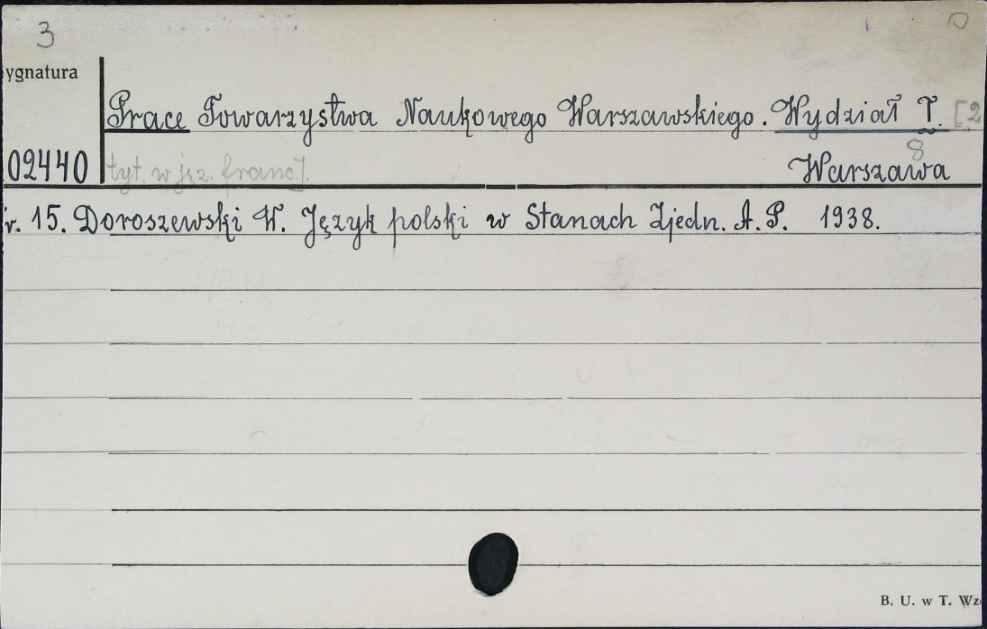 3
ygnatura
Prace Towarzystwa Naukowego Warszawskiego. Wydział I. [2
8
02440 tyt. w jęz. franc]. Warszawa
r. 15. Doroszewski W. Język polski w Stanach Zjedn. A. P. 1938.
B. U. w T. Wz